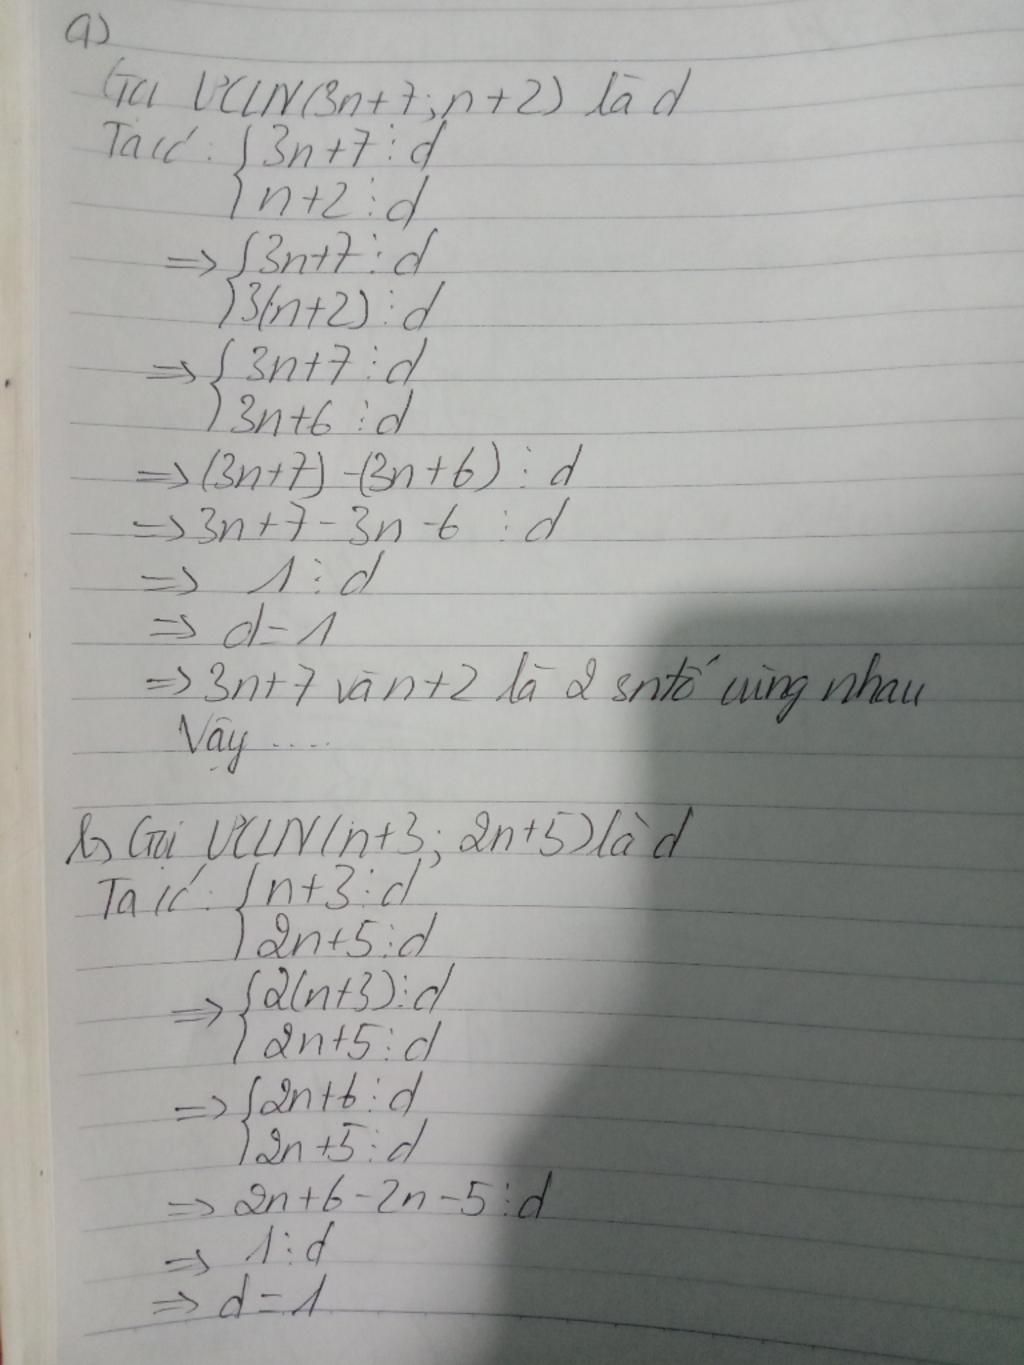 a)
Gọi ƯCLN(3n+7; n+2) là d
Ta có: { 3n+7 ⋮ d
n+2 ⋮ d
=> { 3n+7 ⋮ d
3(n+2) ⋮ d
=> { 3n+7 ⋮ d
3n+6 ⋮ d
=> (3n+7) -(3n+6) ⋮ d
=> 3n+7-3n-6 ⋮ d
=> 1 ⋮ d
=> d=1
=> 3n+7 và n+2 là 2 sntố cùng nhau
Vậy ....
b, Gọi ƯCLN(n+3; 2n+5) là d
Ta có: { n+3 ⋮ d
2n+5 ⋮ d
=> { 2(n+3) ⋮ d
2n+5 ⋮ d
=> { 2n+6 ⋮ d
2n+5 ⋮ d
=> 2n+6-2n-5 ⋮ d
=> 1 ⋮ d
=> d=1